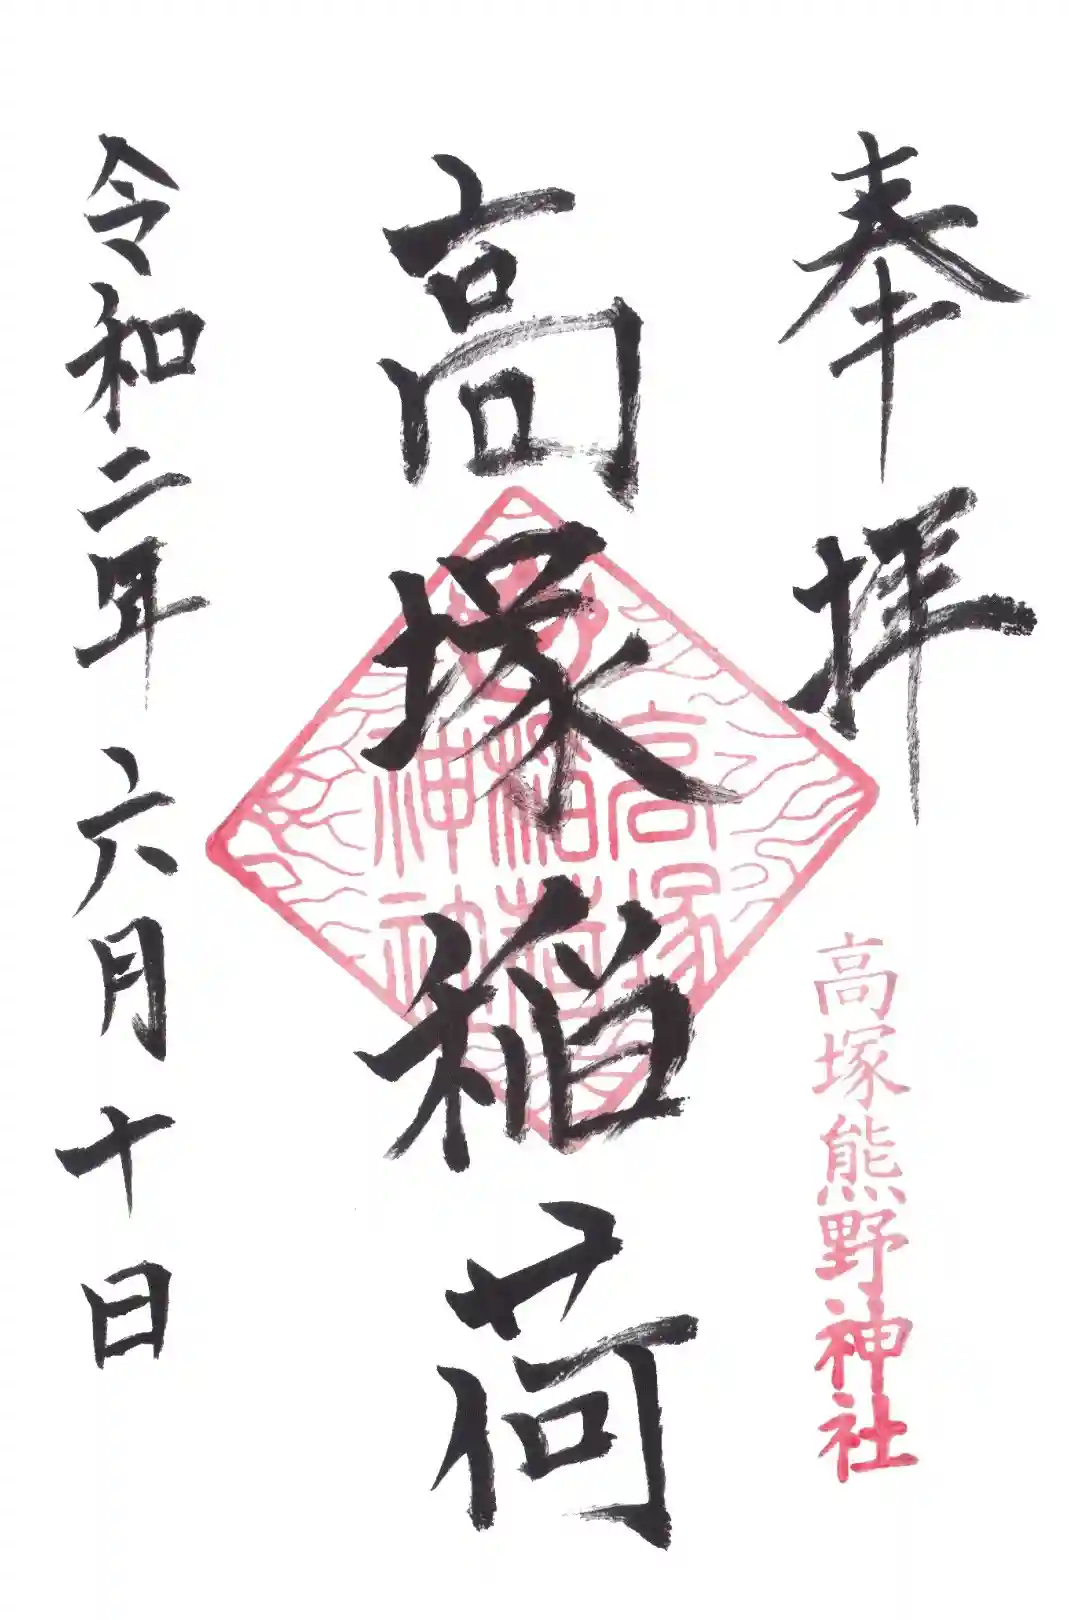 奉拝
高塚熊野神社
高塚稲荷
高塚
稲荷
神社
令和二年 六月十日